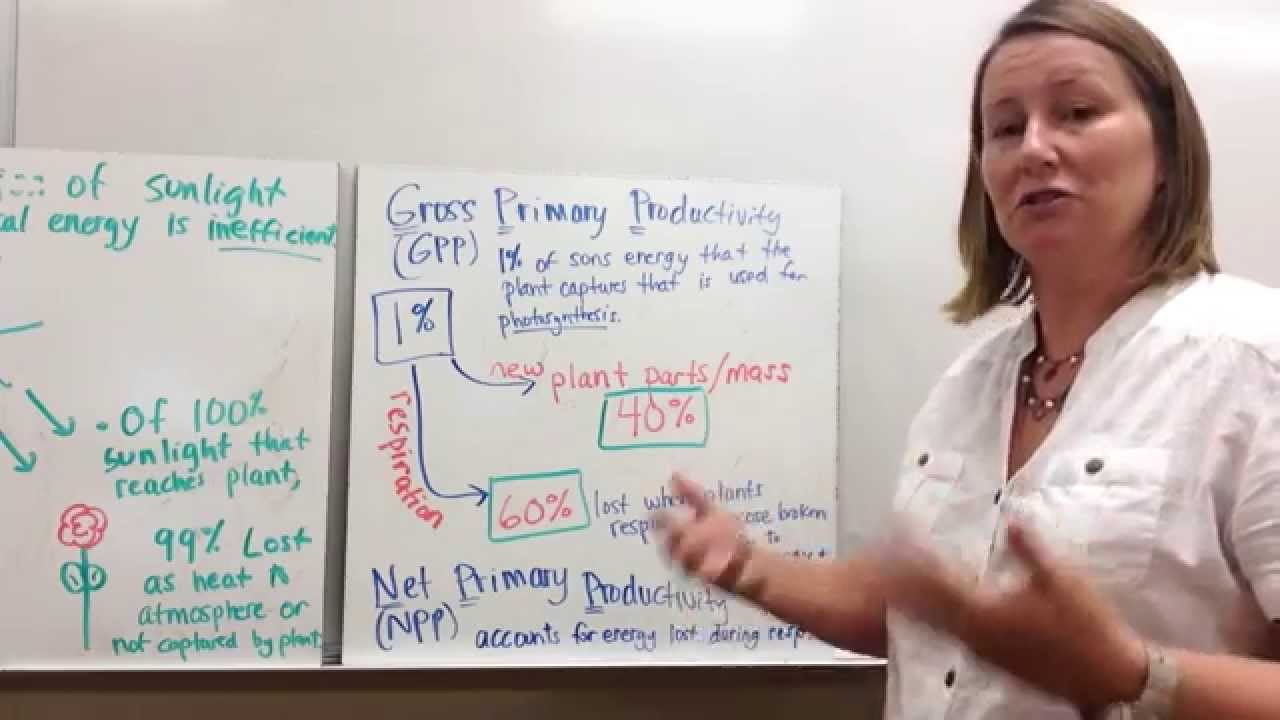 of sunlight
energy is inefficient
. Of 100%
sunlight that
reaches plant,
99% Lost
as heat n
atmosphere or
not captured by plant
Gross Primary Productivity
(GPP)
1% of sons energy that the
plant captures that is used for
photosynthesis.
1%
new plant parts/mass
40%
respiration
60%
lost when plants
broken
to
Net Primary Productivity
(NPP) accounts for energy lost during